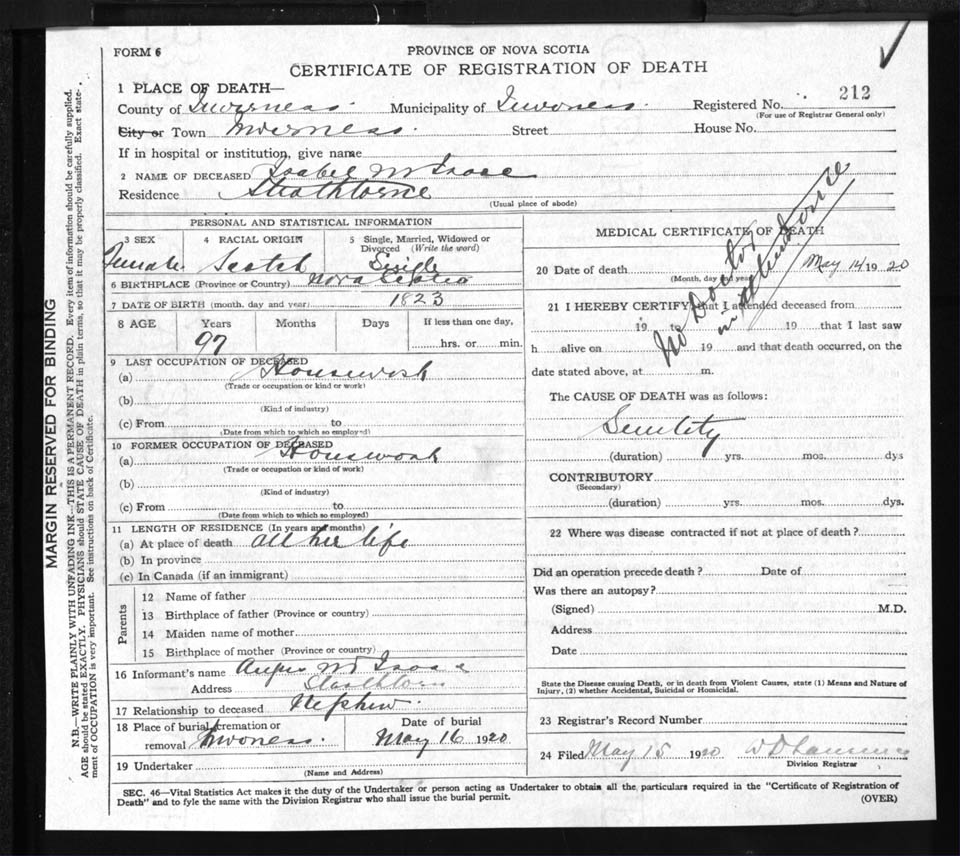 FORM 6
PROVINCE OF NOVA SCOTIA
CERTIFICATE OF REGISTRATION OF DEATH
1 PLACE OF DEATH—
County of Inverness. Municipality of Inverness. Registered No. 212
(For use of Registrar General only)
City or Town Inverness. Street House No.
If in hospital or institution, give name
2 NAME OF DECEASED Isabel Mc Isaac
Residence Strathlorne
(Usual place of abode)
PERSONAL AND STATISTICAL INFORMATION
3 SEX 4 RACIAL ORIGIN 5 Single, Married, Widowed or Divorced (Write the word)
Female Scotch Single
6 BIRTHPLACE (Province or Country) Nova Scotia
7 DATE OF BIRTH (month, day and year) 1823
8 AGE Years Months Days If less than one day,
97 hrs. or min.
9 LAST OCCUPATION OF DECEASED
(a) Housework
(Trade or occupation or kind or work)
(b)
(Kind of industry)
(c) From to
(Date from which to which so employed)
10 FORMER OCCUPATION OF DECEASED
(a) Housework
(Trade or occupation or kind of work)
(b)
(Kind of industry)
(c) From to
(Date from which to which so employed)
11 LENGTH OF RESIDENCE (In years and months)
(a) At place of death all her life
(b) In province
(c) In Canada (if an immigrant)
Parents
12 Name of father
13 Birthplace of father (Province or country)
14 Maiden name of mother
15 Birthplace of mother (Province or country)
16 Informant's name Angus Mc Isaac
Address Strathlorne
17 Relationship to deceased Nephew.
18 Place of burial, cremation or removal Inverness. Date of burial May 16 1920
19 Undertaker
(Name and Address)
MEDICAL CERTIFICATE OF DEATH
20 Date of death May 14 1920
(Month, day and year)
21 I HEREBY CERTIFY that I attended deceased from
19 to 19 that I last saw
h alive on 19 and that death occurred, on the
date stated above, at m.
No Doctor
in attendance
The CAUSE OF DEATH was as follows:
Senility
(duration) yrs. mos. dys
CONTRIBUTORY
(Secondary)
(duration) yrs. mos. dys.
22 Where was disease contracted if not at place of death?
Did an operation precede death? Date of
Was there an autopsy?
(Signed) M.D.
Address
Date
State the Disease causing Death, or in death from Violent Causes, state (1) Means and Nature of
Injury, (2) whether Accidental, Suicidal or Homicidal.
23 Registrar's Record Number
24 Filed May 15 1920
Division Registrar
SEC. 46—Vital Statistics Act makes it the duty of the Undertaker or person acting as Undertaker to obtain all the particulars required in the "Certificate of Registration of
Death" and to fyle the same with the Division Registrar who shall issue the burial permit. (OVER)
MARGIN RESERVED FOR BINDING
N.B.—WRITE PLAINLY WITH UNFADING INK—THIS IS A PERMANENT RECORD. Every item of information should be carefully supplied.
AGE should be stated EXACTLY. PHYSICIANS should STATE CAUSE OF DEATH in plain terms, so that it may be properly classified. Exact state-
ment of OCCUPATION is very important. See instructions on back of Certificate.